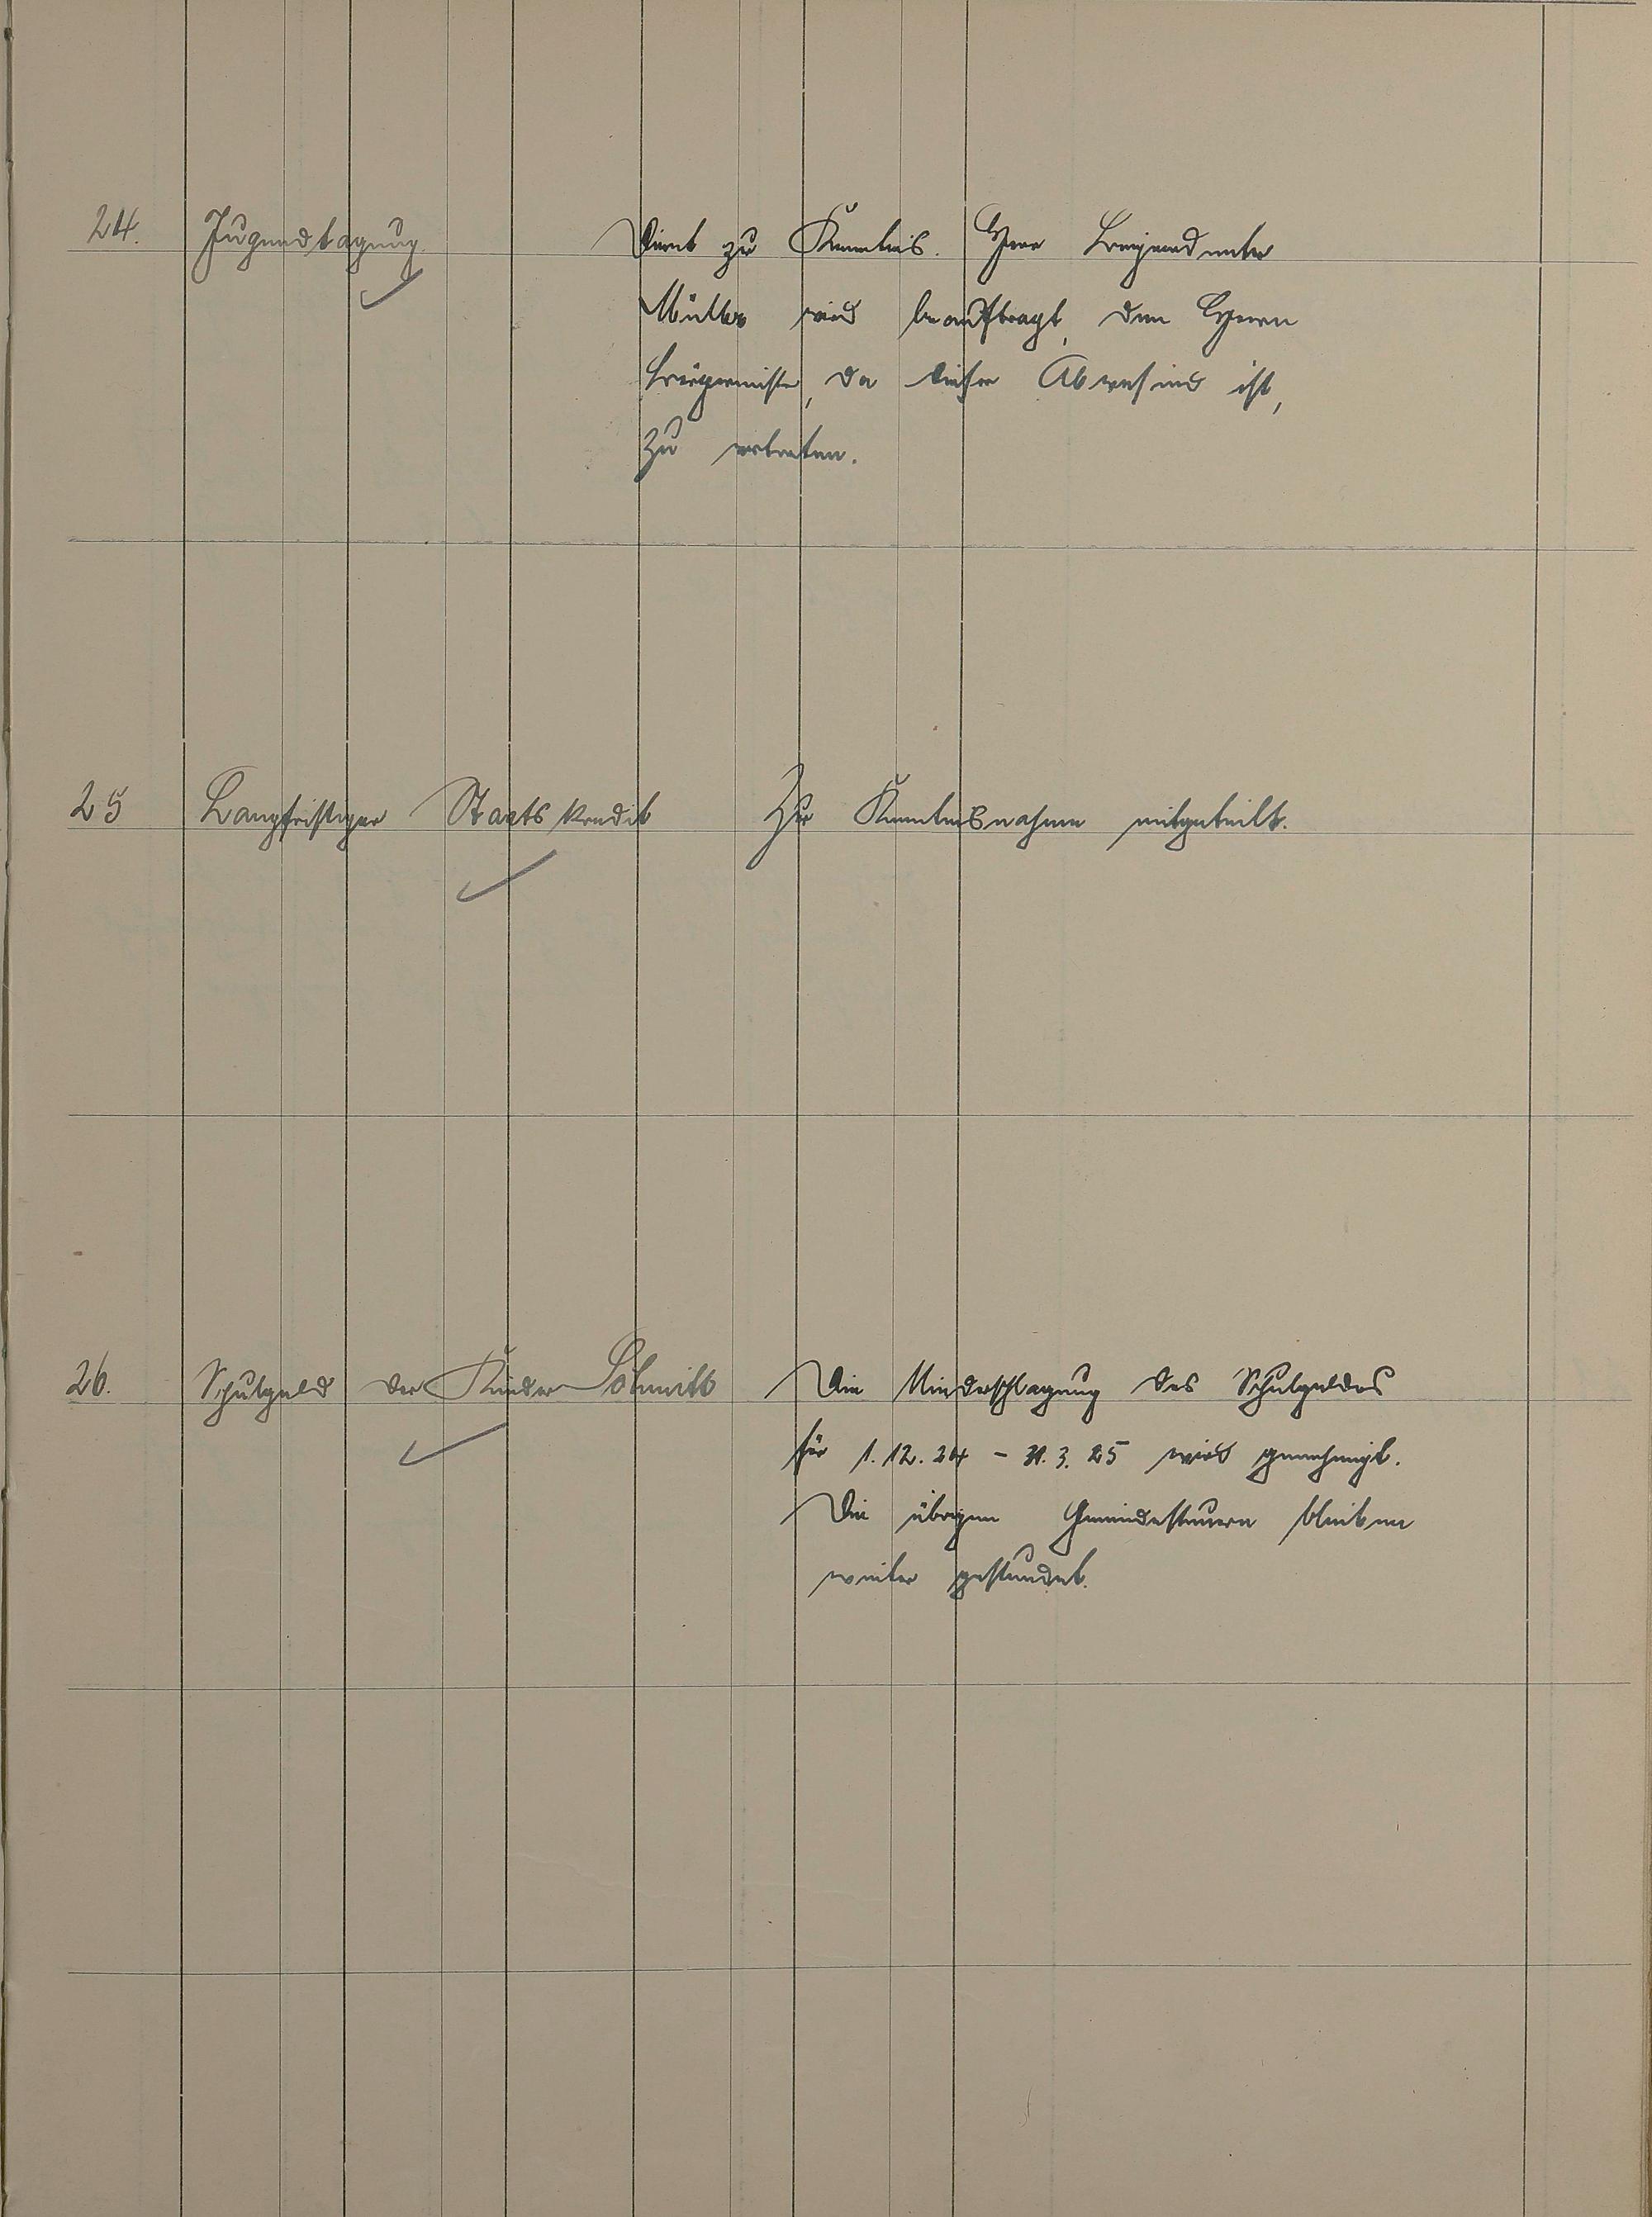 24. Jugendtagung. Dient zu Kenntnis. Herr
Müller wird beauftragt, den Herrn
Bürgermeister, da dieser Abwesend ist,
zu vertreten.
25 Langfristiger Staatskredit Zur Kenntnisnahme mitgeteilt.
26. Schulgeld der Kinder Schmitt Die des Schulgeldes
für 1.12.24 - 31.3.25 wird genehmigt.
Die übrigen Gemeindesteuern bleiben
weiter gestundet.